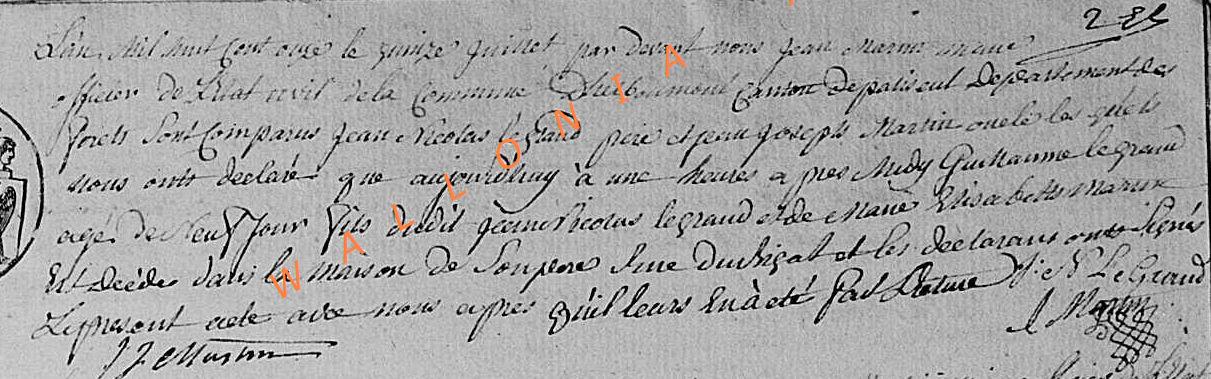 285
L'an Mil huit Cent onze le quinze juillet par devant nous jean Martin maire
officier de L'Etat civil de la Commune D'herbeumont Canton de paliseul Departement des
forets Sont Comparus jean Nicolas legrand pere et jean joseph Martin oncle les quels
nous ont declaré que aujourdhuy à une heures apres Midy Guillaume legrand
agé de Neuf jour fils dudit jean Nicolas legrand et de Marie Elisabeth Martin
Est decédé dans la maison de Son pere Rue et les declarant ont Signés
Le present acte avec nous apres qu'il leurs En à eté fait Lecture J: N: LeGrand
J J Martin
J Martin
WALLONIA